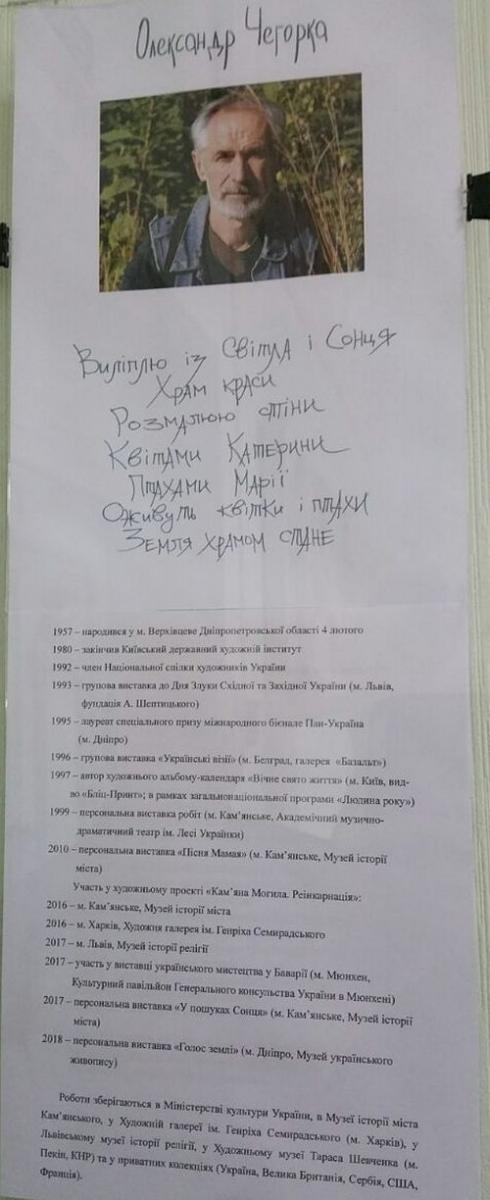 Олександр Чегорка
Виліплю із Світла і Сонця
Храм краси
Розмалюю стіни
Квітами Катерини
Птахами Марії
Оживуть квітки і птахи
Земля храмом стане
1957 – народився у м. Верхівцеве Дніпропетровської області 4 лютого
1980 – закінчив Київський державний художній інститут
1992 – член Національної спілки художників України
1993 – групова виставка до Дня Злуки Східної та Західної України (м. Львів,
фундація А. Шептицького)
1995 – лауреат спеціального призу міжнародного бієнале Пан-Україна
(м. Дніпро)
1996 – групова виставка «Українські візії» (м. Белград, галерея «Базальт»)
1997 – автор художнього альбому-календаря «Вічне свято життя» (м. Київ, вид-
во «Бліц-Принт»; в рамках загальнонаціональної програми «Людина року»)
1999 – персональна виставка робіт (м. Кам'янське, Академічний музично-
драматичний театр ім. Лесі Українки)
2010 – персональна виставка «Пісня Мамая» (м. Кам'янське, Музей історії
міста)
Участь у художньому проекті «Кам'яна Могила. Реінкарнація»:
2016 – м. Кам'янське, Музей історії міста
2016 – м. Харків, Художня галерея ім. Генріха Семирадського
2017 – м. Львів, Музей історії релігії
2017 – участь у виставці українського мистецтва у Баварії (м. Мюнхен,
Культурний павільйон Генерального консульства України в Мюнхені)
2017 – персональна виставка «У пошуках Сонця» (м. Кам'янське, Музей історії
міста)
2018 – персональна виставка «Голос землі» (м. Дніпро, Музей українського
живопису)
Роботи зберігаються в Міністерстві культури України, в Музеї історії міста
Кам'янського, у Художній галереї ім. Генріха Семирадського (м. Харків), у
Львівському музеї історії релігії, у Художньому музеї Тараса Шевченка (м.
Пекін, КНР) та у приватних колекціях (Україна, Велика Британія, Сербія, США,
Франція).